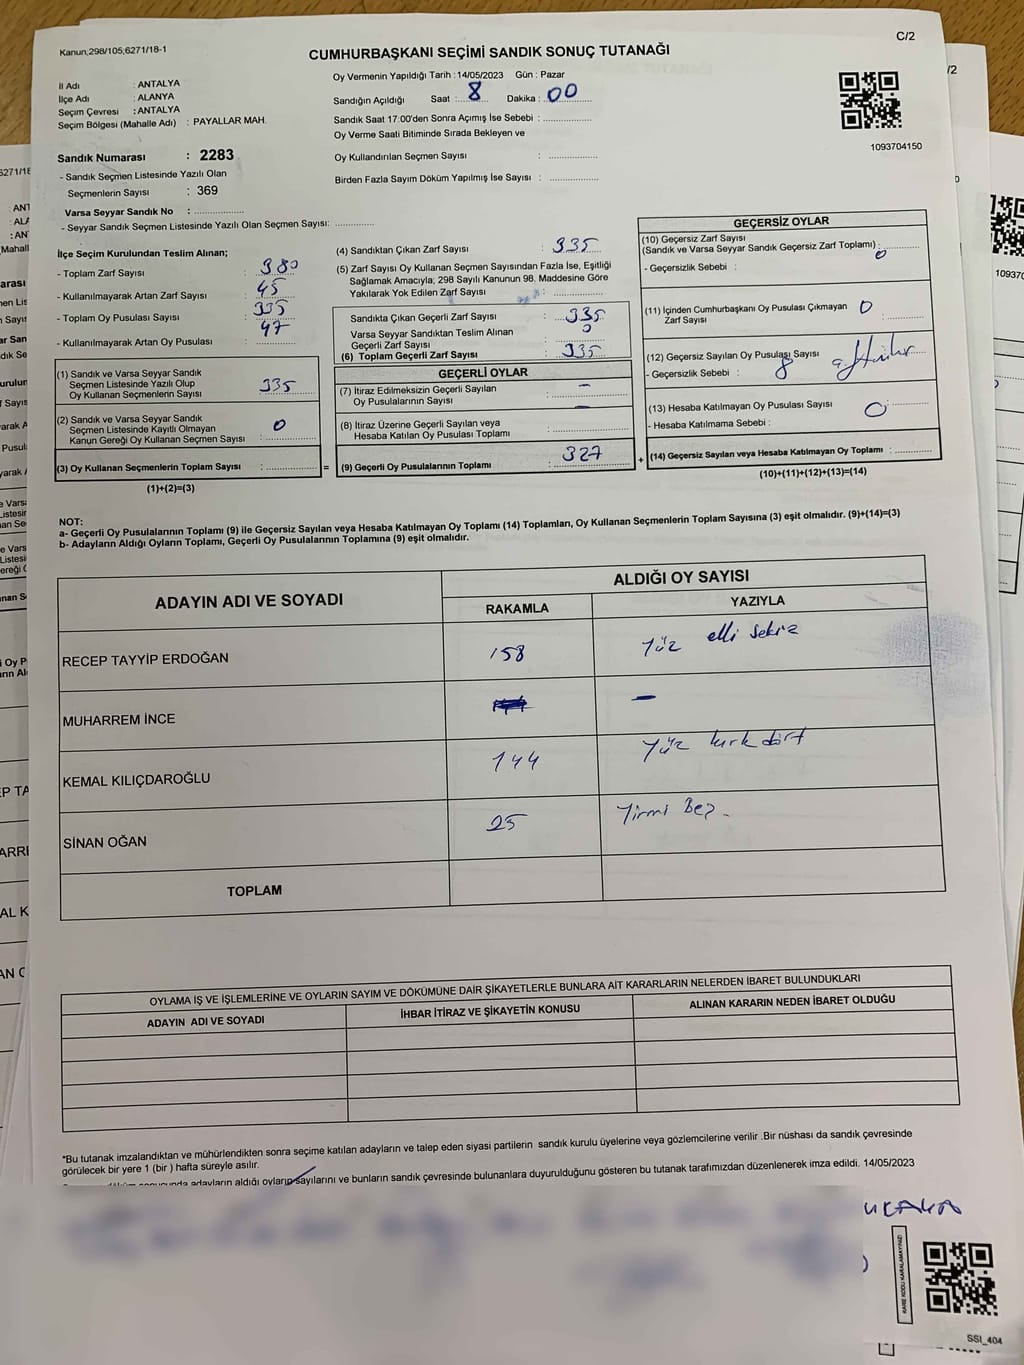 Kanun;298/105;6271/18-1
C/2
CUMHURBAŞKANI SEÇİMİ SANDIK SONUÇ TUTANAĞI
İl Adı : ANTALYA
İlçe Adı : ALANYA
Seçim Çevresi : ANTALYA
Seçim Bölgesi (Mahalle Adı) : PAYALLAR MAH.
Oy Vermenin Yapıldığı Tarih : 14/05/2023 Gün : Pazar
Sandığın Açıldığı Saat : 8 Dakika : 00
Sandık Saat 17:00'den Sonra Açımış İse Sebebi :
Oy Verme Saati Bitiminde Sırada Bekleyen ve
Oy Kullandırılan Seçmen Sayısı :
Birden Fazla Sayım Döküm Yapılmış İse Sayısı :
1093704150
Sandık Numarası : 2283
- Sandık Seçmen Listesinde Yazılı Olan
Seçmenlerin Sayısı : 369
Varsa Seyyar Sandık No :
- Seyyar Sandık Seçmen Listesinde Yazılı Olan Seçmen Sayısı:
İlçe Seçim Kurulundan Teslim Alınan;
- Toplam Zarf Sayısı : 380
- Kullanılmayarak Artan Zarf Sayısı : 45
- Toplam Oy Pusulası Sayısı : 335
- Kullanılmayarak Artan Oy Pusulası : 47
(1) Sandık ve Varsa Seyyar Sandık
Seçmen Listesinde Yazılı Olup
Oy Kullanan Seçmenlerin Sayısı : 335
(2) Sandık ve Varsa Seyyar Sandık
Seçmen Listesinde Kayıtlı Olmayan
Kanun Gereği Oy Kullanan Seçmen Sayısı : 0
(3) Oy Kullanan Seçmenlerin Toplam Sayısı :
(1)+(2)=(3)
(4) Sandıktan Çıkan Zarf Sayısı : 335
(5) Zarf Sayısı Oy Kullanan Seçmen Sayısından Fazla İse, Eşitliği
Sağlamak Amacıyla; 298 Sayılı Kanunun 98. Maddesine Göre
Yakılarak Yok Edilen Zarf Sayısı :
Sandıkta Çıkan Geçerli Zarf Sayısı : 335
Varsa Seyyar Sandıktan Teslim Alınan
Geçerli Zarf Sayısı : 0
(6) Toplam Geçerli Zarf Sayısı : 335
GEÇERLİ OYLAR
(7) İtiraz Edilmeksizin Geçerli Sayılan
Oy Pusulalarının Sayısı : -
(8) İtiraz Üzerine Geçerli Sayılan veya
Hesaba Katılan Oy Pusulası Toplamı : -
= (9) Geçerli Oy Pusulalarının Toplamı : 327
GEÇERSİZ OYLAR
(10) Geçersiz Zarf Sayısı
(Sandık ve Varsa Seyyar Sandık Geçersiz Zarf Toplamı) : 0
- Geçersizlik Sebebi :
(11) İçinden Cumhurbaşkanı Oy Pusulası Çıkmayan
Zarf Sayısı : 0
(12) Geçersiz Sayılan Oy Pusulası Sayısı : 8
- Geçersizlik Sebebi :
(13) Hesaba Katılmayan Oy Pusulası Sayısı : 0
- Hesaba Katılmama Sebebi :
+ (14) Geçersiz Sayılan veya Hesaba Katılmayan Oy Toplamı :
(10)+(11)+(12)+(13)=(14)
NOT:
a- Geçerli Oy Pusulalarının Toplamı (9) ile Geçersiz Sayılan veya Hesaba Katılmayan Oy Toplamı (14) Toplamları, Oy Kullanan Seçmenlerin Toplam Sayısına (3) eşit olmalıdır. (9)+(14)=(3)
b- Adayların Aldığı Oyların Toplamı, Geçerli Oy Pusulalarının Toplamına (9) eşit olmalıdır.
ADAYIN ADI VE SOYADI ALDIĞI OY SAYISI
RAKAMLA YAZIYLA
RECEP TAYYİP ERDOĞAN 158 Yüz elli sekiz
MUHARREM İNCE -
KEMAL KILIÇDAROĞLU 144 Yüz kırk dört
SİNAN OĞAN 25 Yirmi Beş
TOPLAM
OYLAMA İŞ VE İŞLEMLERİNE VE OYLARIN SAYIM VE DÖKÜMÜNE DAİR ŞİKAYETLERLE BUNLARA AİT KARARLARIN NELERDEN İBARET BULUNDUKLARI
ADAYIN ADI VE SOYADI İHBAR İTİRAZ VE ŞİKAYETİN KONUSU ALINAN KARARIN NEDEN İBARET OLDUĞU
*Bu tutanak imzalandıktan ve mühürlendikten sonra seçime katılan adayların ve talep eden siyasi partilerin sandık kurulu üyelerine veya gözlemcilerine verilir .Bir nüshası da sandık çevresinde
görülecek bir yere 1 (bir ) hafta süreyle asılır.
adayların aldığı oyların sayılarını ve bunların sandık çevresinde bulunanlara duyurulduğunu gösteren bu tutanak tarafımızdan düzenlenerek imza edildi. 14/05/2023
KARE KODU KARALAMAYINIZ!
SSI_404